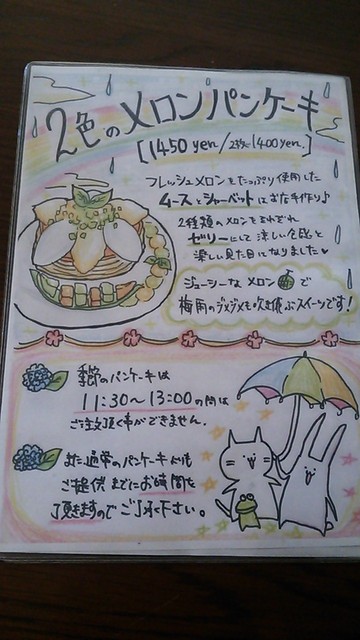 2色のメロンパンケーキ
[1450 yen./ 1400 yen.]
フレッシュメロンをたっぷり使用した
ムースとシャーベットはお店手作り♪
2種類のメロンをそれぞれ
ゼリーにして 涼しい食感と
楽しい見た目になりました♥
ジューシーな メロン で
梅雨のジメジメも吹き飛ぶスイーツです!
季節のパンケーキは
11:30〜13:00の間は
ご注文頂く事ができません.
また通常のパンケーキよりも
ご提供までにお時間を
頂きますのでご了承下さい。